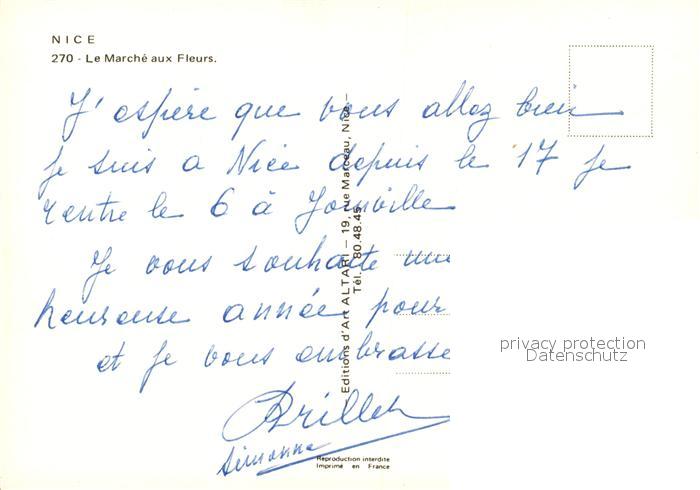 NICE
270 - Le Marché aux Fleurs.
J'espère que vous allez bien
je suis a Nice depuis le 17 je
rentre le 6 à Joinville
Je vous souhaite une
heureuse année pour
et je vous embrasse
Simonne
— Editions d'Art ALTARI — 19, rue Marceau, Nice —
Tél. 80.48.45
Reproduction interdite
Imprimé en France
privacy protection
Datenschutz